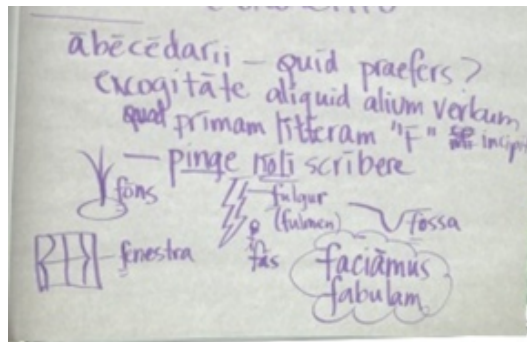 ābēcēdarii — quid praefers?
excogitāte aliquid alium verbum
quod primam litteram "F" incipit
— pinge noli scribere
fōns
fulgur
(fulmen)
fossa
fās
fenestra
faciāmus
fabulam